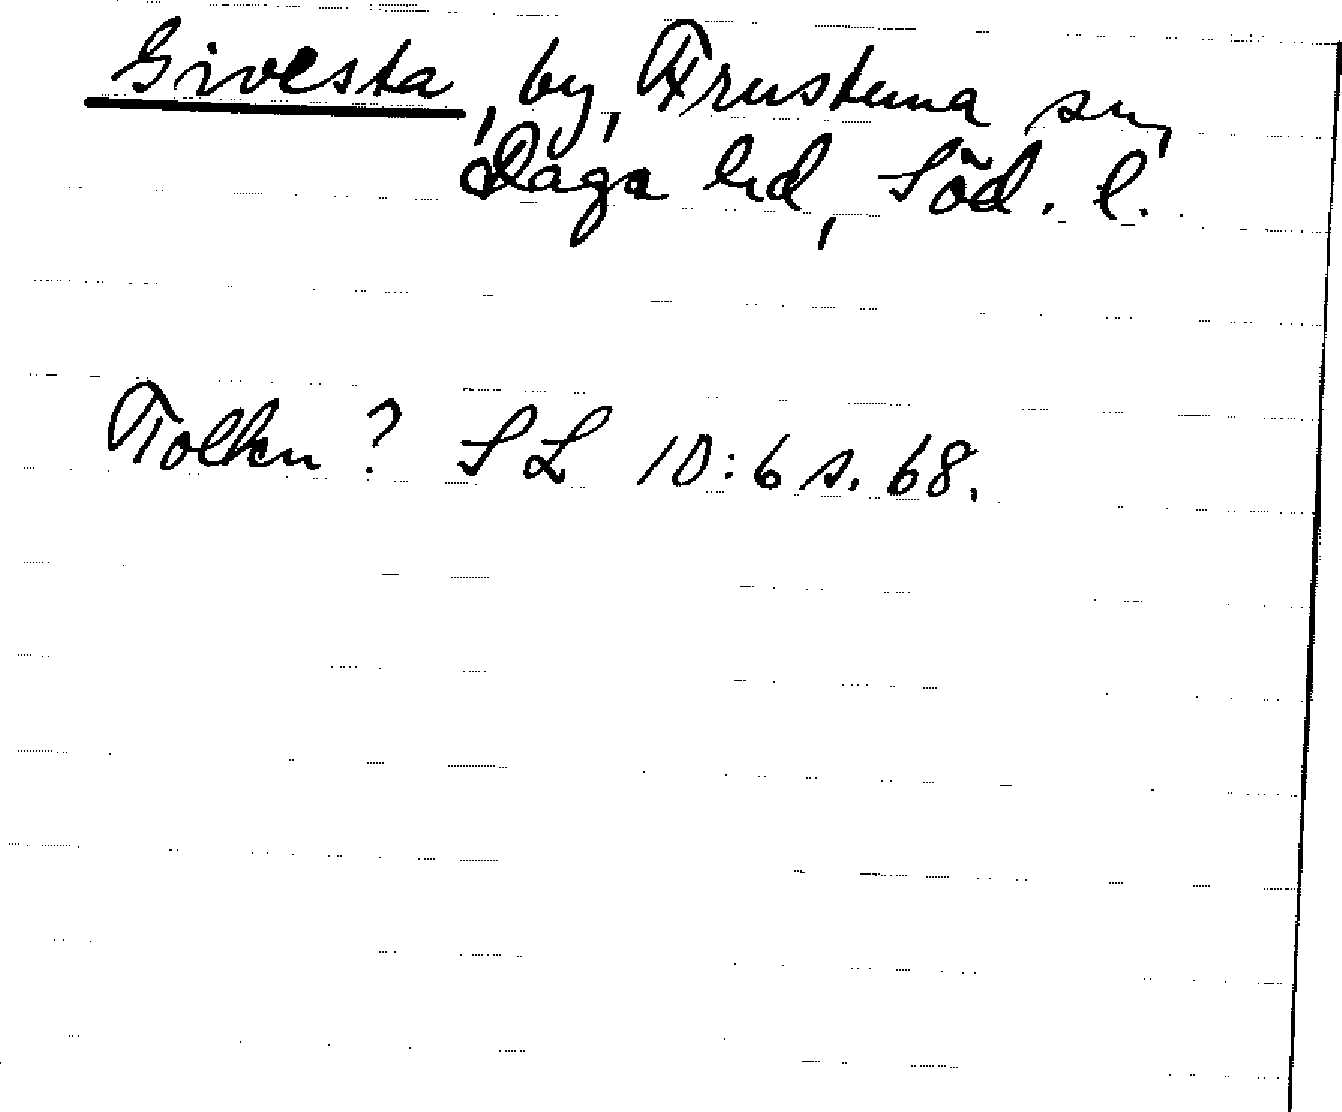 Givesta, by, Frustuna sn,
Daga hd, Söd. l.
Tolkn? SL 10:6 s. 68.